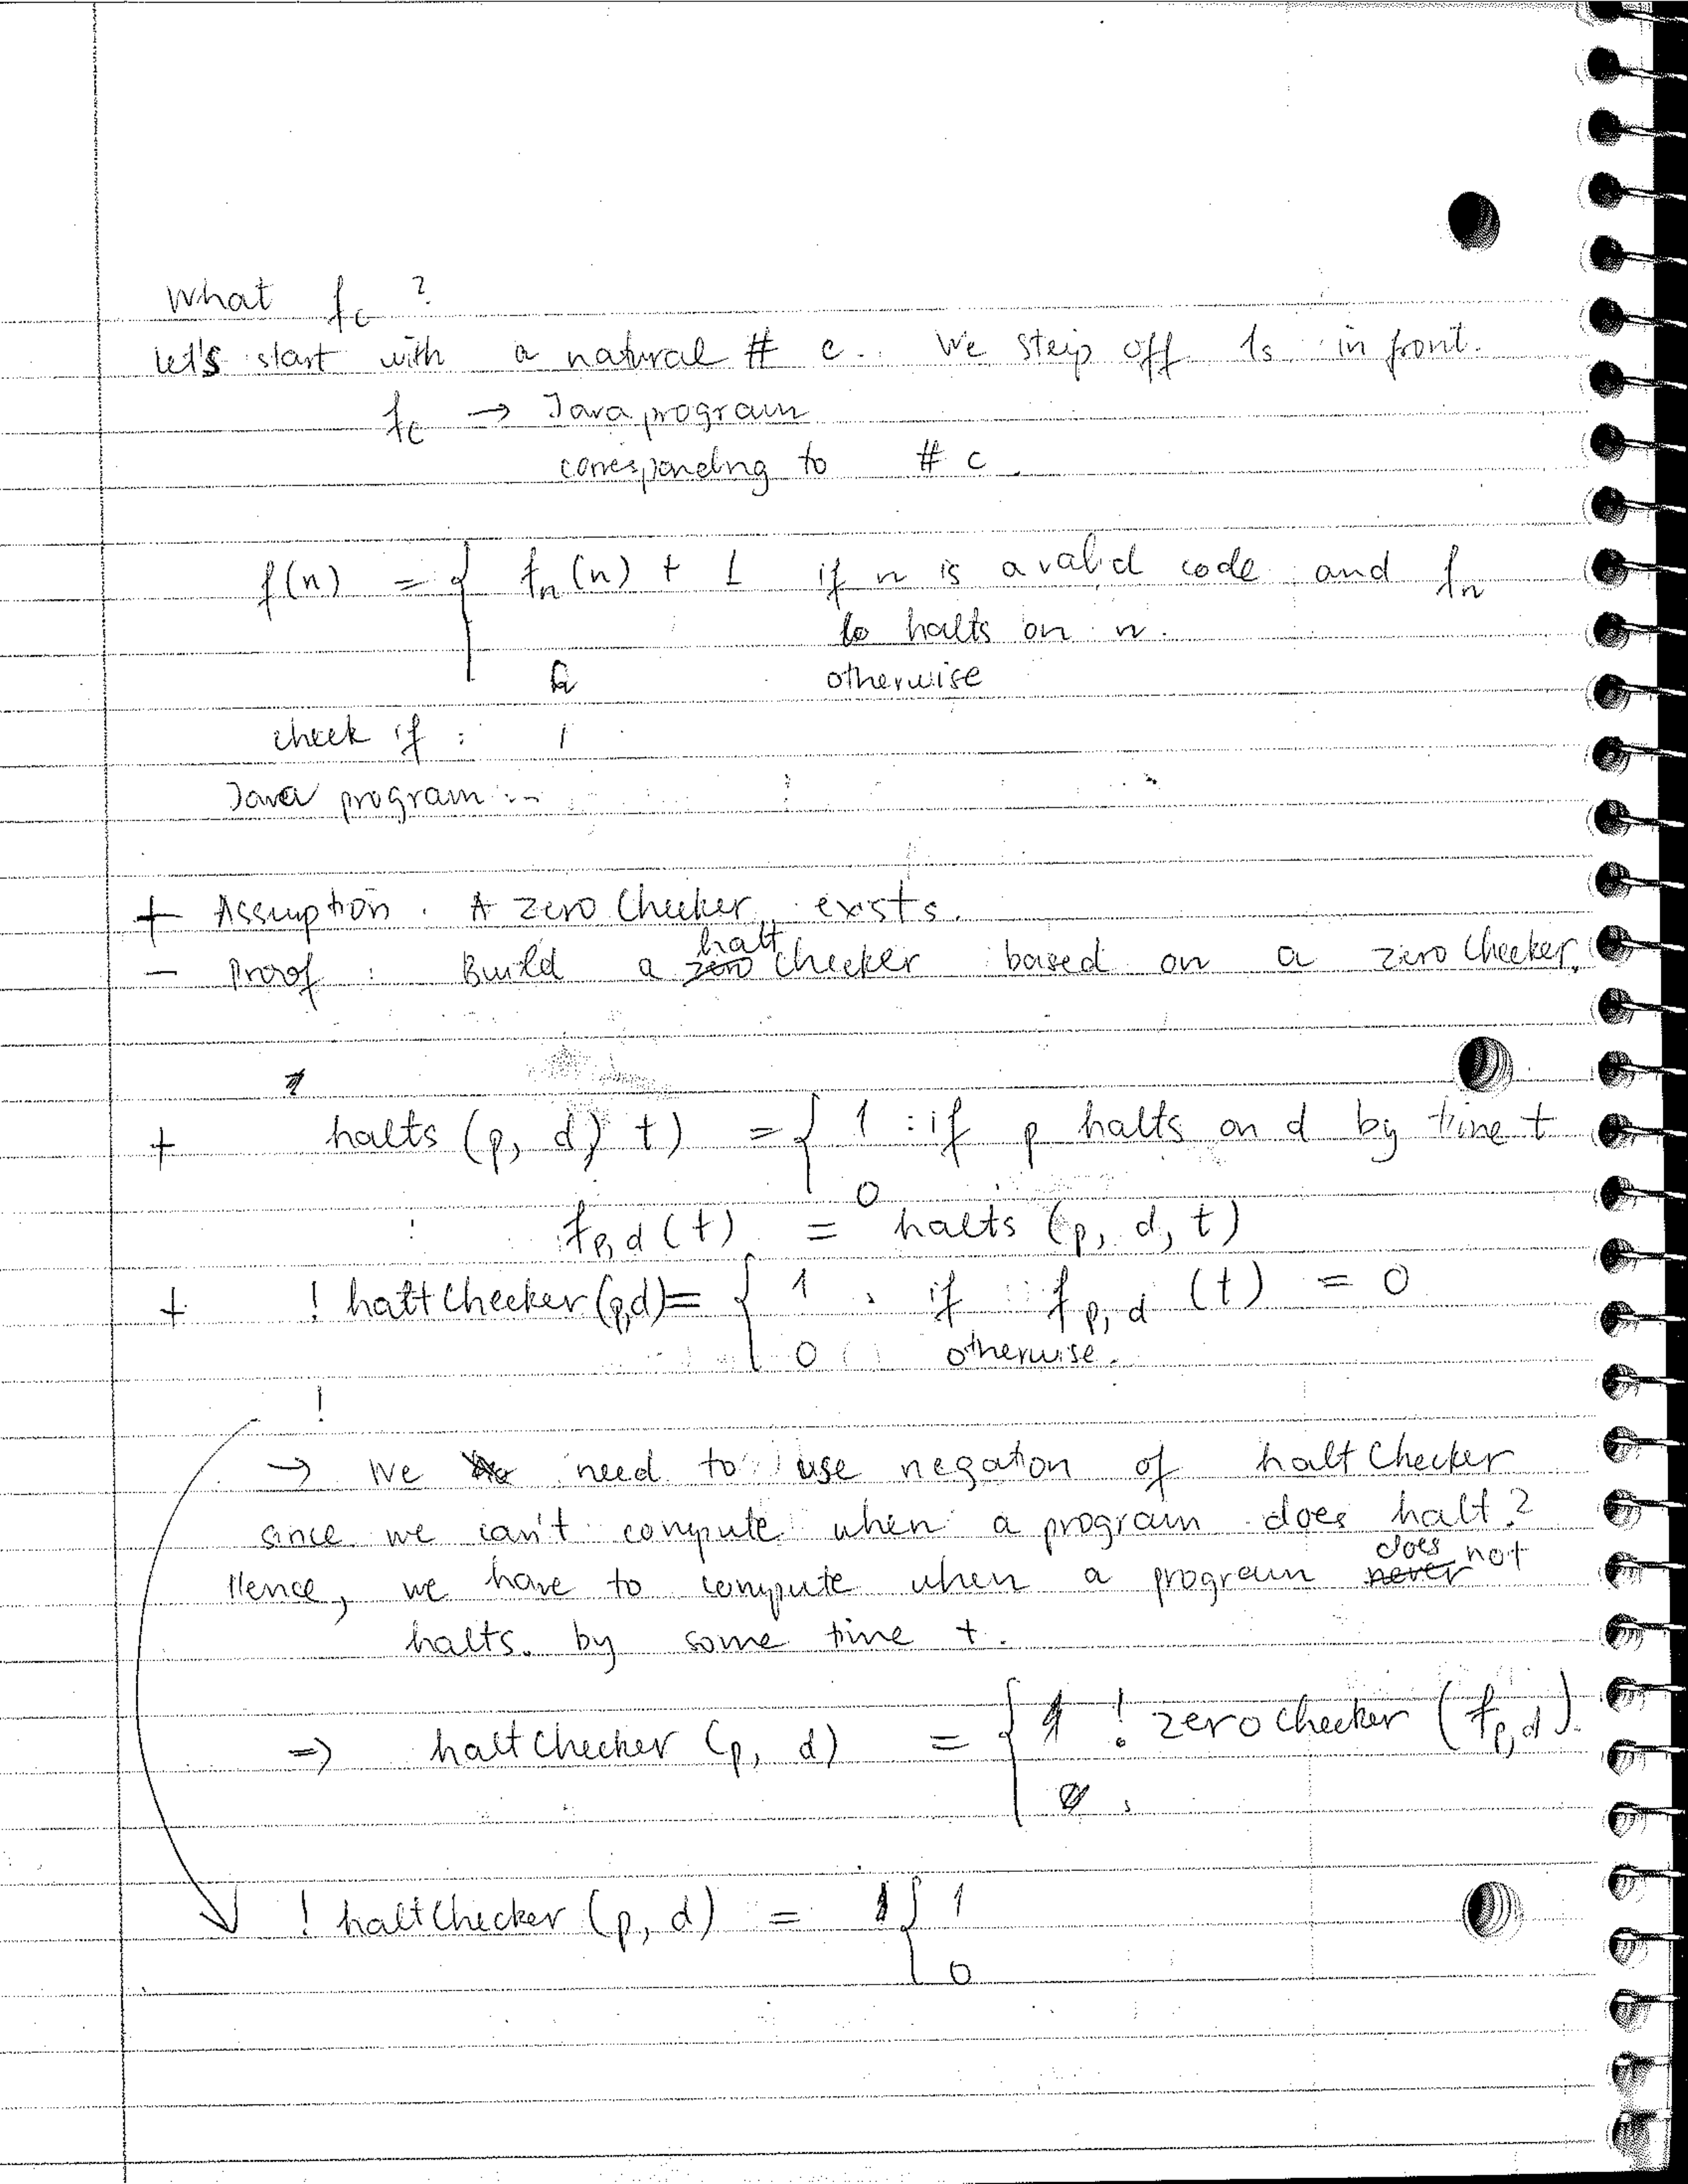 What f_c ?
Let's start with a natural # c. We strip off 1s in front.
f_c → Java program
corresponding to # c.
f(n) = { f_n(n) + 1 if n is a valid code and f_n
halts on n.
otherwise
check if : 1
Java program...
+ Assumption. A zero Checker exists.
- Proof : Build a halt checker based on a zero Checker.
+ halts (p, d, t) = { 1 : if p halts on d by time t
0
f_p,d (t) = halts (p, d, t)
+ ! haltChecker(p,d) = { 1 . if f_p,d (t) = 0
0 otherwise.
!
→ We need to use negation of halt Checker
since we can't compute when a program does halt?
Hence, we have to compute when a program does not
halts. by some time t.
⇒ haltChecker (p, d) = { ! zerochecker (f_p,d).
! haltChecker (p, d) = { 1
0